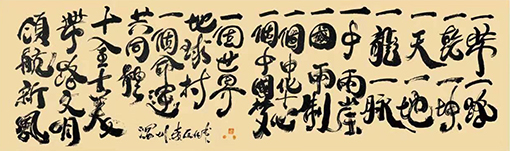 一帶一路
一乾一坤
一天一地
一龍一脉
一中兩岸
一國兩制
一個中华心
一個中國梦
一個世界
地球村
一個命运
共同體
十八大
帶路文明
領航新風
深圳